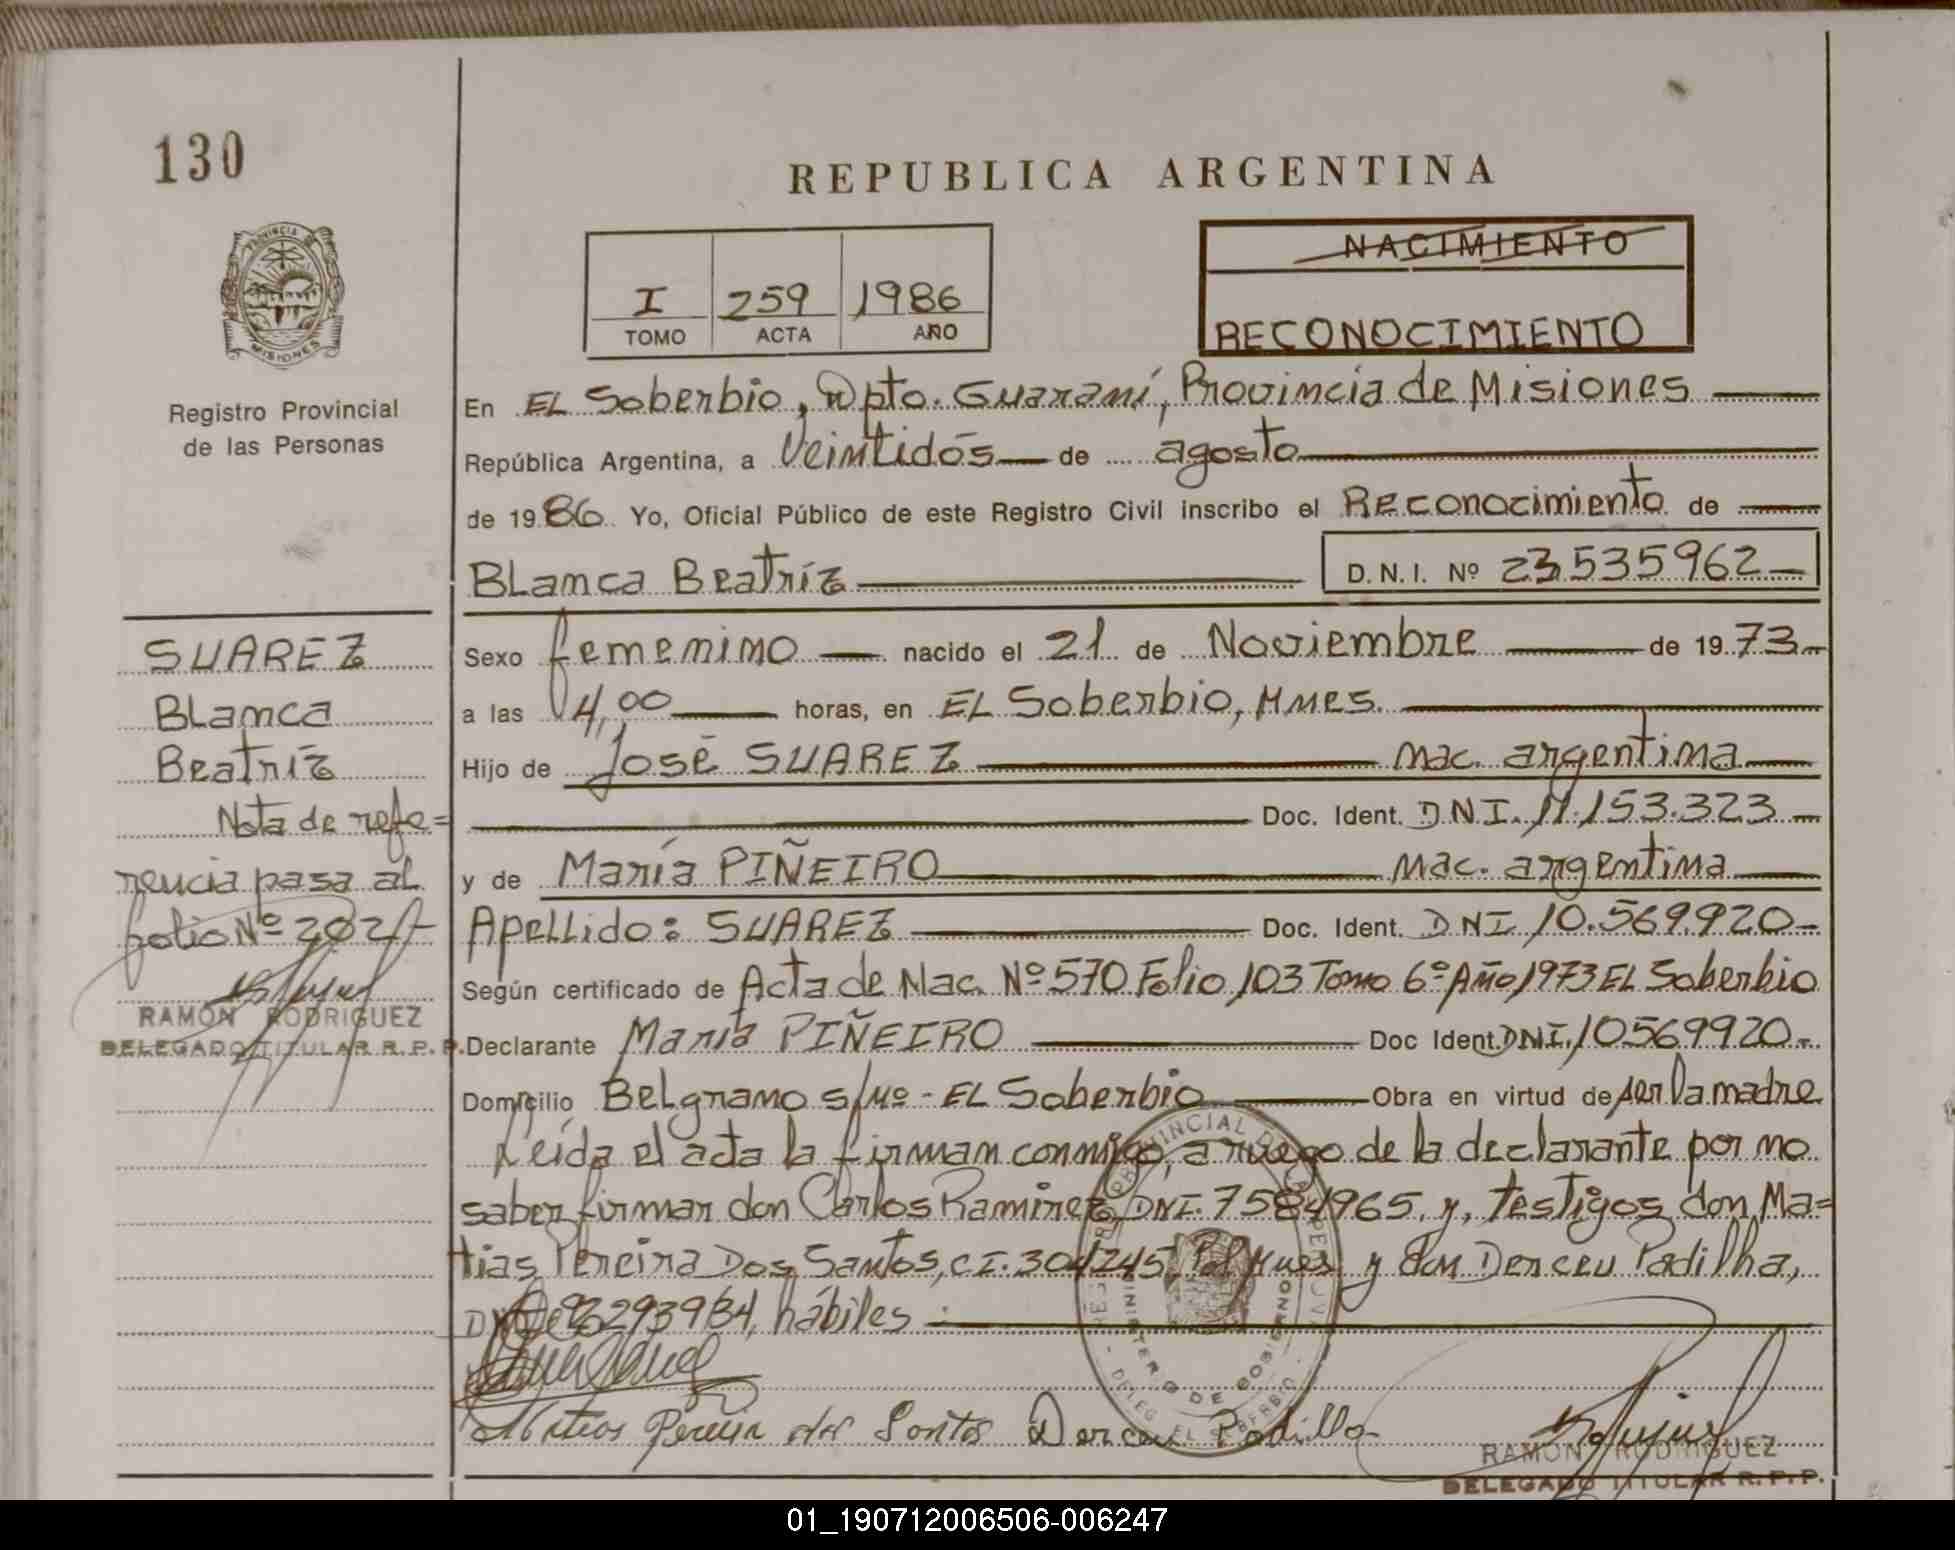 130
REPUBLICA ARGENTINA
PROVINCIA DE
MISIONES
Registro Provincial
de las Personas
I 259 1986
TOMO ACTA AÑO
NACIMIENTO
RECONOCIMIENTO
En EL Soberbio, Dpto. Guaraní, Provincia de Misiones
República Argentina, a Veintidós de agosto
de 1986 Yo, Oficial Público de este Registro Civil inscribo el Reconocimiento de
Blanca Beatríz D.N.I. Nº 23535962
SUAREZ
Blanca
Beatríz
Nota de refe=
rencia pasa al
folio Nº 202
RAMON RODRIGUEZ
DELEGADO TITULAR R. P. P.
Sexo femenino nacido el 21 de Noviembre de 1973
a las 4,00 horas, en EL Soberbio, Mnes.
Hijo de José SUAREZ nac. argentina
Doc. Ident. DNI. 11.153.323
y de María PIÑEIRO nac. argentina
Apellido: SUAREZ Doc. Ident. DNI 10.569.920
Según certificado de Acta de Nac. Nº 570 Folio 103 Tomo 6º Año 1973 EL Soberbio
Declarante María PIÑEIRO Doc Ident. DNI. 10569920
Domicilio Belgrano s/nº - EL Soberbio Obra en virtud de ser la madre
Leída el acta la firman conmigo, a ruego de la declarante por no
saber firmar don Carlos Ramirez, DNI. 7584965, y, testigos don Ma=
tias Pereira Dos Santos, CI. 304245, Pol Mnes y don Derceu Padilha,
hábiles
Pereira dos Santos Derceu Padilla
MINISTERIO DE GOBIERNO
DELEG. EL SOBERBIO
RAMON RODRIGUEZ
DELEGADO TITULAR R. P. P.
01_190712006506-006247